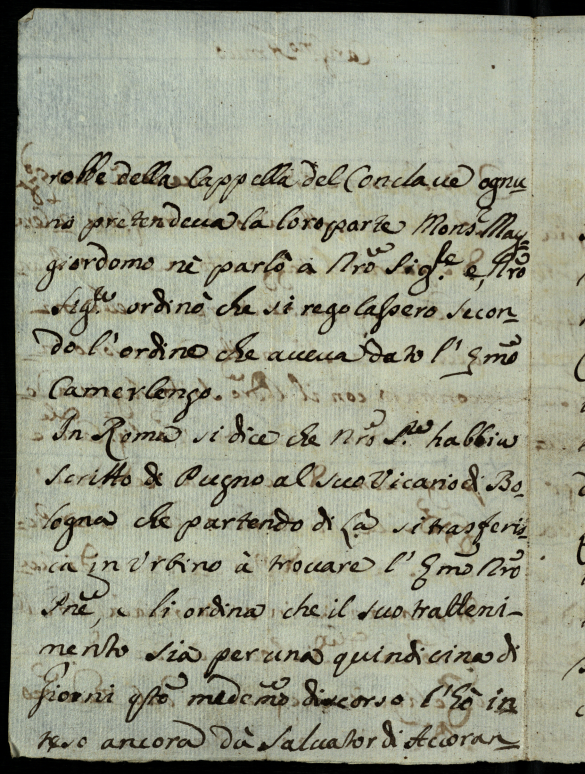 robbe della Cappella del Conclave ognu-
no pretendeva la loro parte Mons.r Mag-
giordomo nè parlò à Nrõ Sig.re e, Nrõ
Sig.re ordinò che si regolassero secon-
do l'ordine che aveva dato l'Emõ
Camerlengo.
In Roma si dice che Nrõ S.re habbia
scritto di Pugno al suo Vicario di Bo-
logna che partendo di Là si trasferis-
ca in Urbino à trovare l'Emõ Nrõ
Pnẽ, e li ordina che il suo tratteni-
mento sia per una quindicina di
Giorni qsto medemo discorso l'hò in-
teso ancora dà Salvator di Accoran-